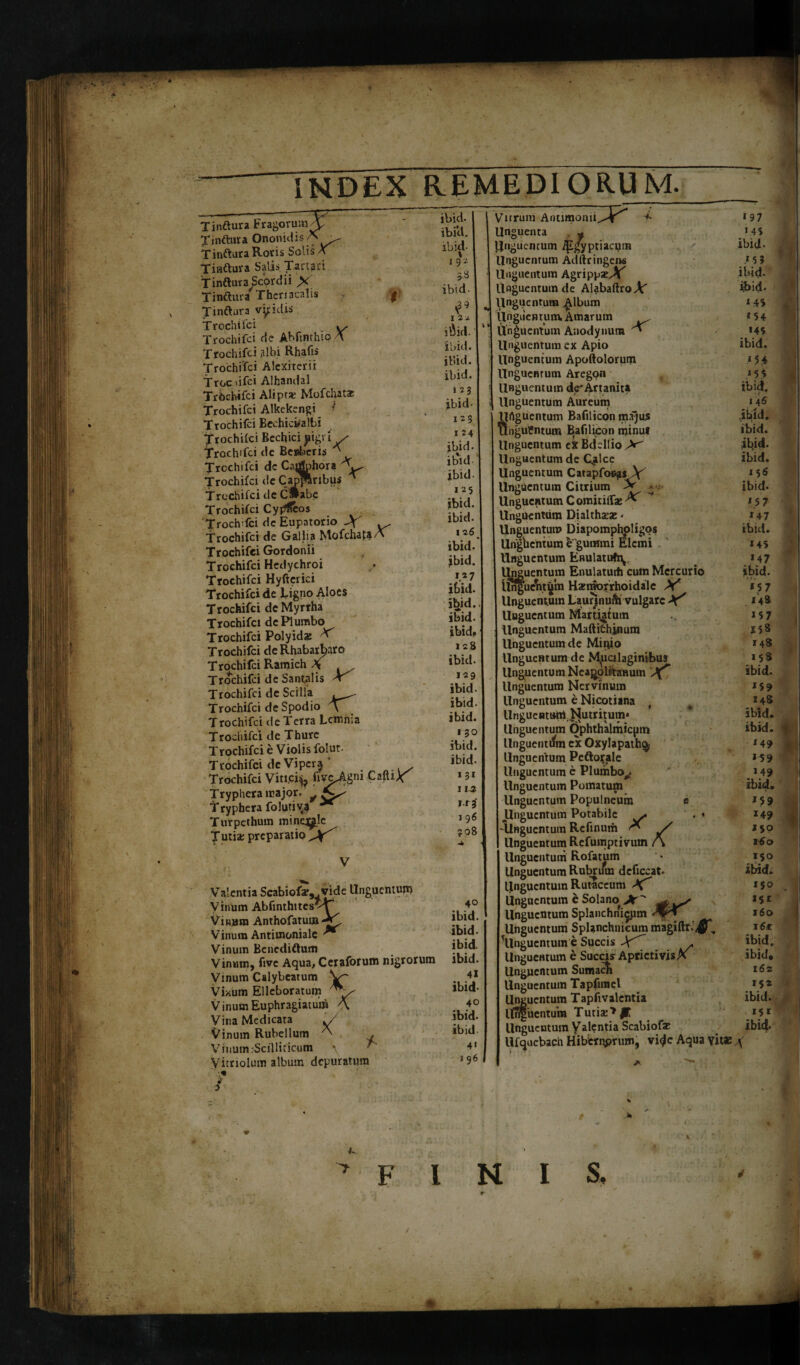 INDEX REMEDIORUM.
Tinctura Fragorum ibid.
Tinctura Ononidis ibid.
Tinctura Roris Solis ibid.
Tinctura Salis Tartari 192
Tinctura Scordii 38
Tinctura Theriacalis ibid.
Tinctura viridis
Trochisci
Trochisci de Absinthio ibid.
Trochisci albi Rhasis ibid.
Trochisci Alexiterii ibid.
Trochisci Alhandal ibid.
Trochisci Aliptæ Moschatæ 123
Trochisci Alkekengi ibid.
Trochisci Bechici albi 123
Trochisci Bechici nigri 124
Trochisci de Berberis ibid.
Trochisci de Camphora ibid.
Trochisci de Capparibus ibid.
Trochisci de Carabe 125
Trochisci Cypheos ibid.
Trochisci de Eupatorio ibid.
Trochisci de Gallia Moschata 126.
Trochisci Gordonii ibid.
Trochisci Hedychroi ibid.
Trochisci Hysterici 127
Trochisci de Ligno Aloes ibid.
Trochisci de Myrrha ibid.
Trochisci de Plumbo ibid.
Trochisci Polyidæ ibid.
Trochisci de Rhabarbaro 128
Trochisci Ramich ibid.
Trochisci de Santalis 129
Trochisci de Scilla ibid.
Trochisci de Spodio ibid.
Trochisci de Terra Lemnia ibid.
Trochisci de Thure 130
Trochisci è Violis solut. ibid.
Trochisci de Vipera ibid.
Trochisci Viticis, sive Agni Casti 131
Tryphera major. 112
Tryphera solutiva 113
Turpethum minerale 196
Tutiæ preparatio 208
V
Valentia Scabiosæ, vide Unguentum
Vinum Absinthites 40
Vinum Anthosatum ibid.
Vinum Antimoniale ibid.
Vinum Benedictum ibid
Vinum, sive Aqua, Cerasorum nigrorum ibid.
Vinum Calybeatum 41
Vinum Elleboratum ibid.
Vinum Euphragiatum 40
Vina Medicata ibid.
Vinum Rubellum ibid
Vinum Scilliticum 41
Vitriolum album depuratum 196
Vitrum Antimonii 197
Unguenta 145
Unguentum Ægyptiacum ibid.
Unguentum Adstringens 153
Unguentum Agrippæ ibid.
Unguentum de Alabastro ibid.
Unguentum Album 145
Unguentum Amarum 154
Unguentum Anodynum 145
Unguentum ex Apio ibid.
Unguentum Apostolorum 154
Unguentum Aregon 155
Unguentum de Artanita ibid.
Unguentum Aureum 146
Unguentum Basilicon majus ibid.
Unguentum Basilicon minus ibid.
Unguentum ex Bdellio ibid.
Unguentum de Calce ibid.
Unguentum Catapsoras 156
Unguentum Citrium ibid.
Unguentum Comitissæ 157
Unguentum Dialthææ 147
Unguentum Diapompholigos ibid.
Unguentum è gummi Elemi 145
Unguentum Enulatum 147
Unguentum Enulatum cum Mercurio ibid.
Unguentum Hæmorrhoidale 157
Unguentum Laurinum vulgare 148
Unguentum Martiatum 157
Unguentum Mastichinum 158
Unguentum de Minio 148
Unguentum de Mucilaginibus 158
Unguentum Neapolitanum ibid.
Unguentum Nervinum 159
Unguentum è Nicotiana 148
Unguentum Nutritum ibid.
Unguentum Ophthalmicum ibid.
Unguentum ex Oxylapatho 149
Unguentum Pectorale 159
Unguentum è Plumbo 149
Unguentum Pomatum ibid.
Unguentum Populneum 159
Unguentum Potabile 149
Unguentum Resinum 150
Unguentum Resumptivum 160
Unguentum Rosatum 150
Unguentum Rubrum desiccat. ibid.
Unguentum Rutaceum 150
Unguentum è Solano 151
Unguentum Splanchnicum 160
Unguentum Splanchnicum magistr. 161
Unguentum è Succis ibid.
Unguentum è Succis Aprictivis ibid.
Unguentum Sumach 162
Unguentum Tapsimel 152
Unguentum Tapsivalentia ibid.
Unguentum Tutiæ 151
Unguentum Valentia Scabiosæ ibid.
Usquebach Hibernorum, vide Aqua vitæ
FINIS.